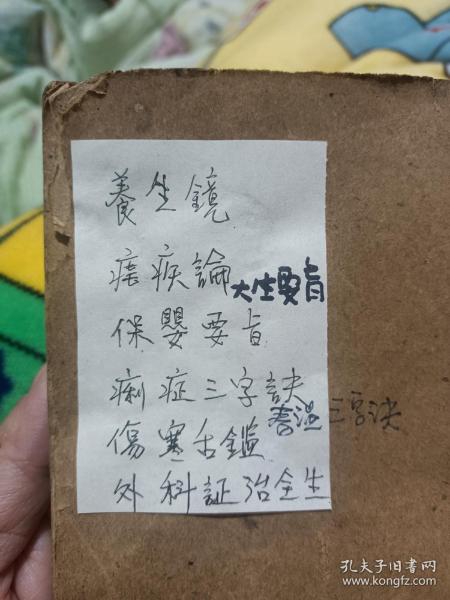 養生鏡
痞疾論
大生要旨
保嬰要旨
痢症三字訣
春温三字诀
傷寒舌鑑
外科証治全生
孔夫子旧书网
www.kongfz.com